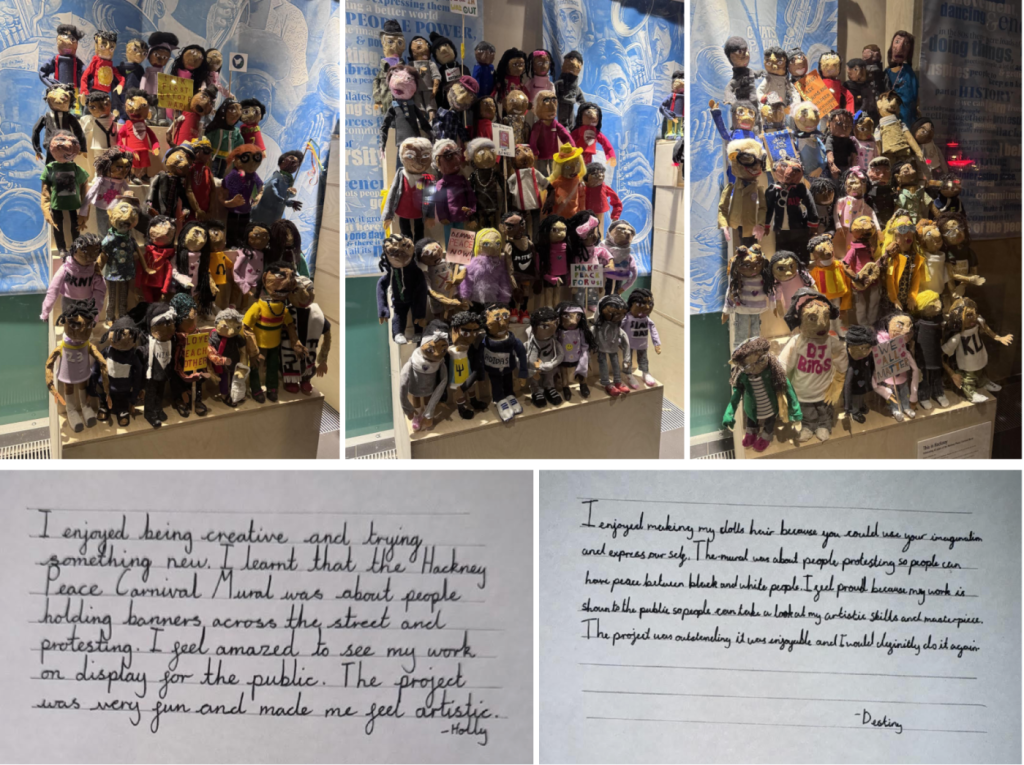 expressing them
PEOPLE
POWER.
OUT
dancing
doing things.
HISTORY
one day
LOVE
EACH
OTHER
PEACE
NOW!
MAKE
PEACE
FOR US!
DJ
BROS
KU
I enjoyed being creative and trying
something new. I learnt that the Hackney
Peace Carnival Mural was about people
holding banners across the street and
protesting. I feel amazed to see my work
on display for the public. The project
was very fun and made me feel artistic.
-Holly
I enjoyed making my dolls hair because you could use your imagination
and express our self. The mural was about people protesting so people can
have peace between black and white people. I feel proud because my work is
shown to the public so people can take a look at my artistic skills and masterpiece.
The project was outstanding it was enjoyable and I would definitly do it again
-Destiny